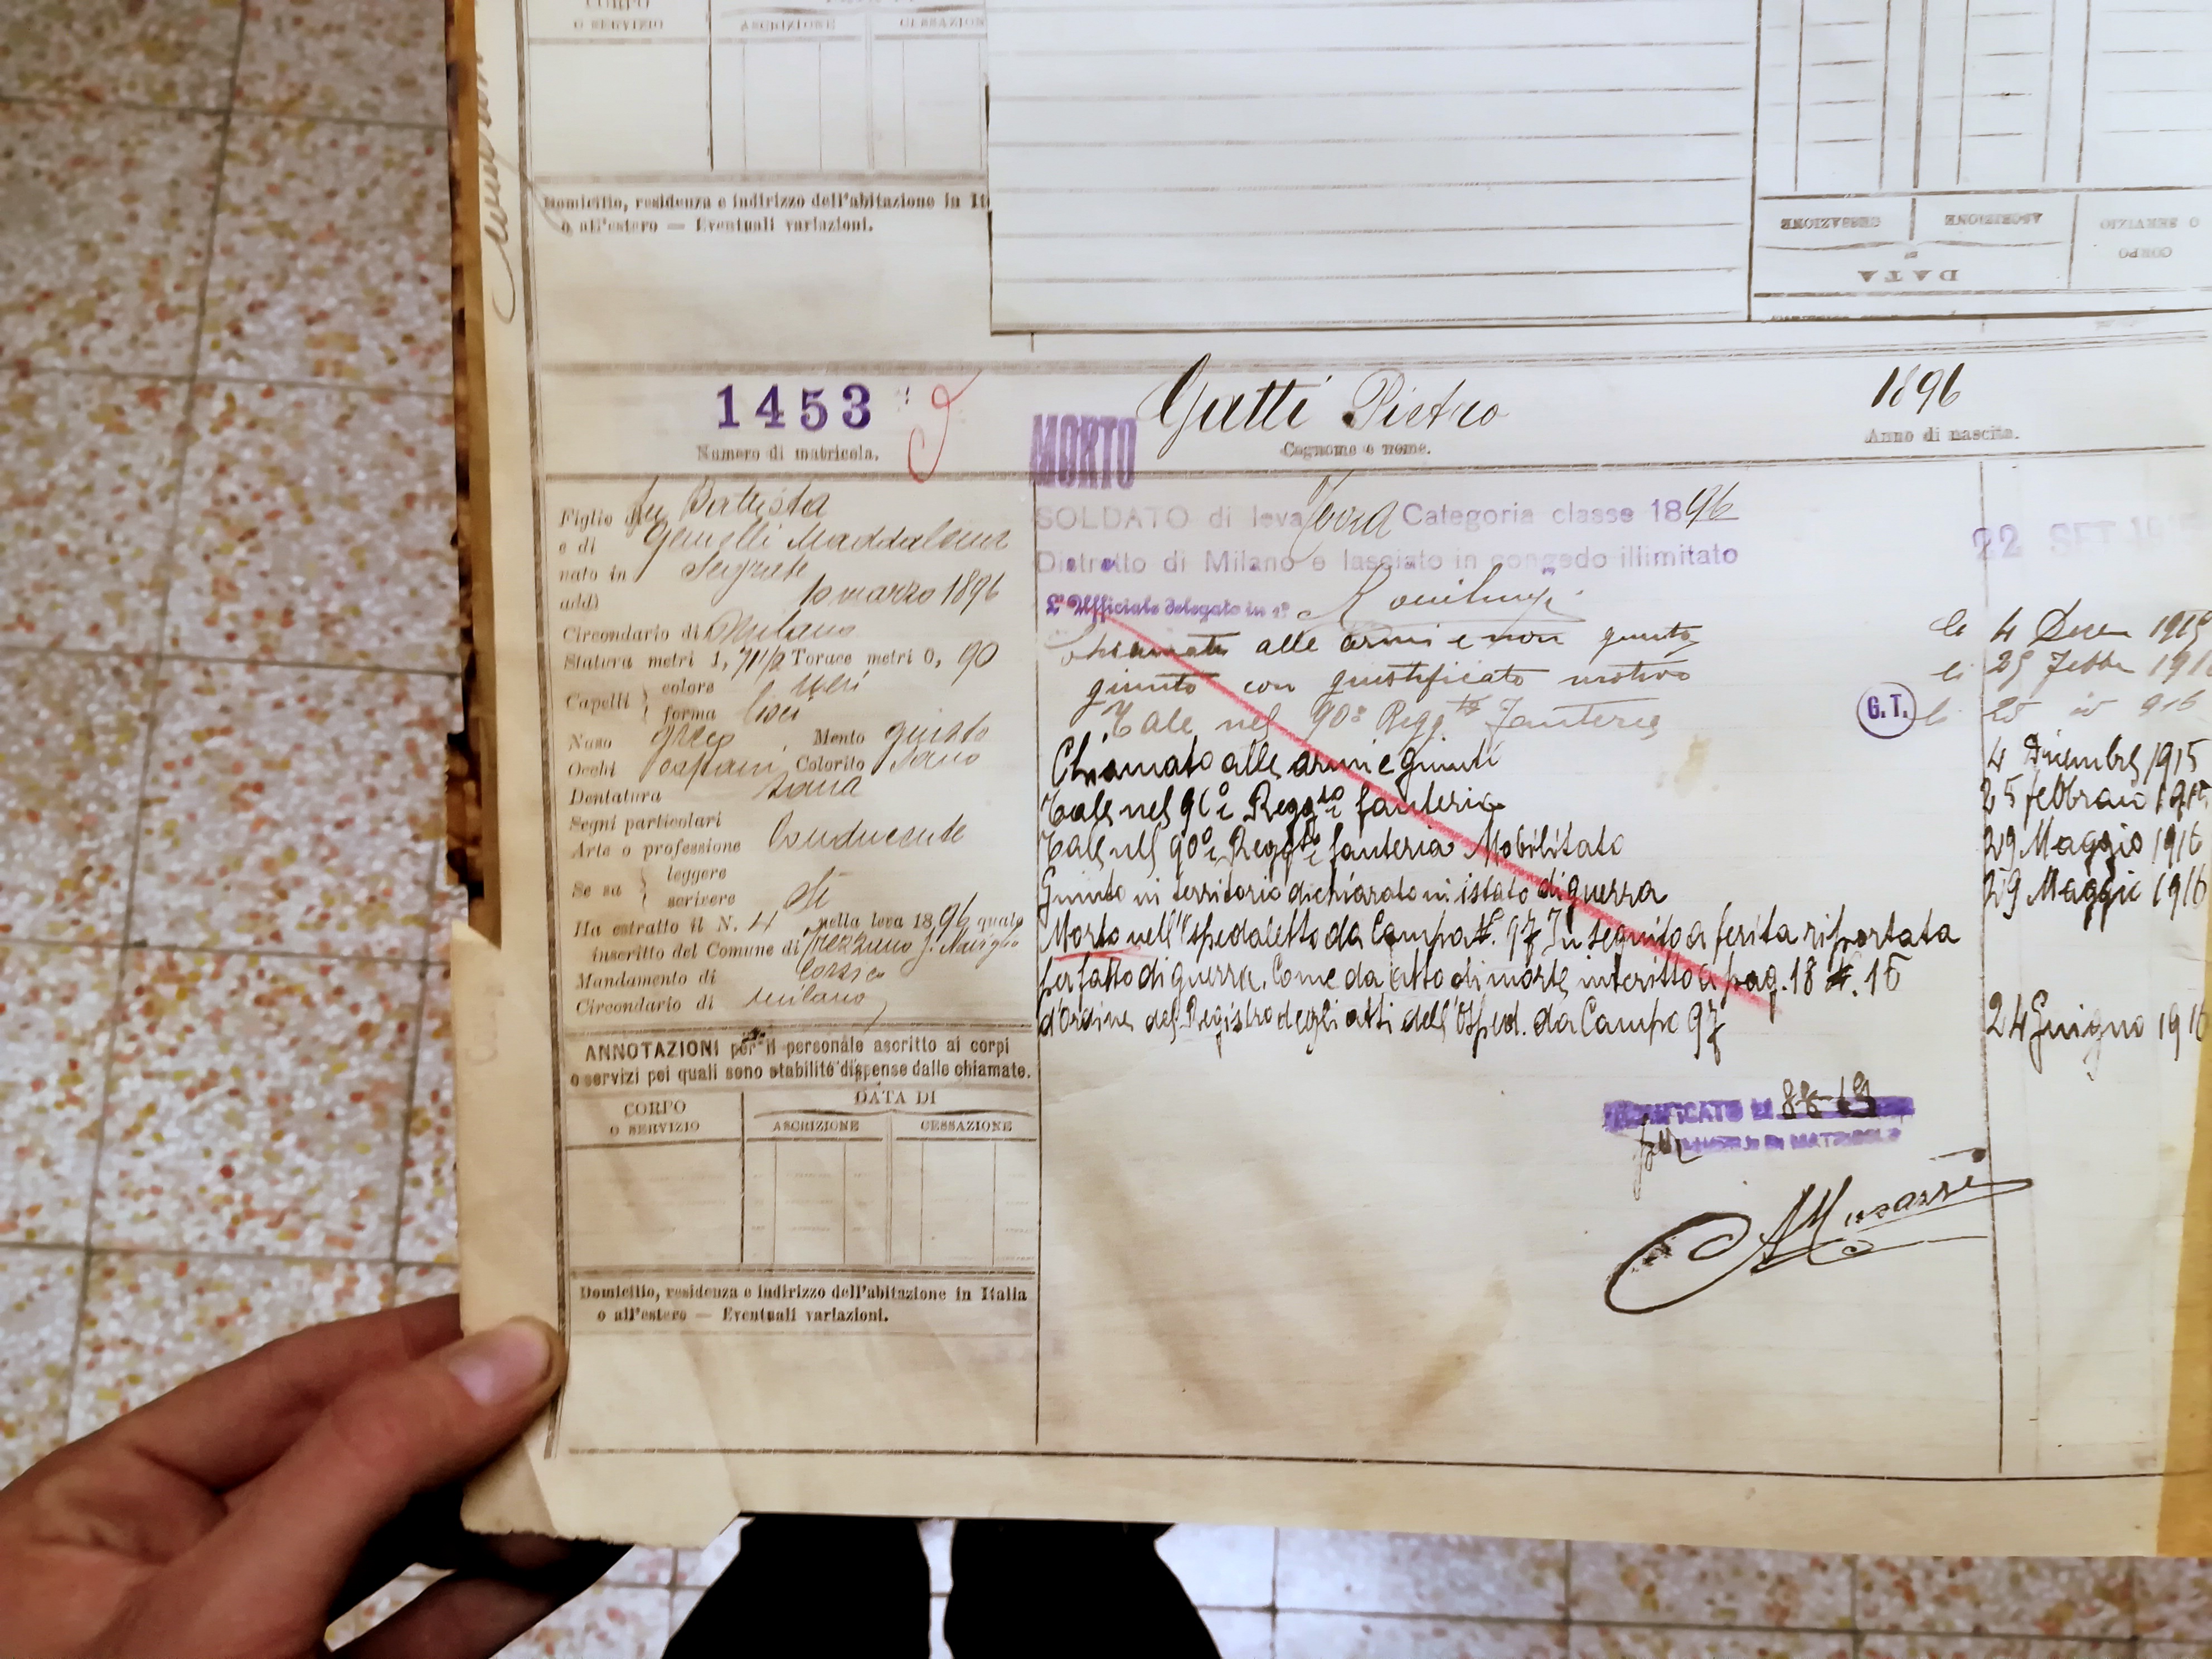 CORPO
O SERVIZIO
ASCRIZIONE
CESSAZION
Domicilio, residenza e indirizzo dell'abitazione in It
o all'estero — Eventuali variazioni.
CESSAZIONE
ASCRIZIONE
CORPO
O SERVIZIO
DATA
DI
1453
Numero di matricola.
MORTO
Gatti Pietro
Cognome e nome.
1896
Anno di nascita.
Figlio di fu Battista
e di Gemelli Maddalena
nato in Segrate
addì 10 marzo 1896
Circondario di Milano
Statura metri 1, 71 1/2 Torace metri 0, 90
Capelli colore neri
forma lisci
Naso greco Mento giusto
Occhi castani Colorito sano
Dentatura sana
Segni particolari
Arte o professione Conducente
Se sa leggere
scrivere Sì
Ha estratto il N. 4 nella leva 1896 quale
inscritto del Comune di Trezzano s. Naviglio
Mandamento di Corsico
Circondario di Milano
ANNOTAZIONI per il personale ascritto ai corpi
o servizi pei quali sono stabilite dispense dalle chiamate.
CORPO
O SERVIZIO
DATA DI
ASCRIZIONE
CESSAZIONE
Domicilio, residenza e indirizzo dell'abitazione in Italia
o all'estero — Eventuali variazioni.
SOLDATO di leva Categoria classe 1896
Distretto di Milano e lasciato in congedo illimitato
22 SET 19
L'Ufficiale delegato in
Chiamato alle armi e non giunto
li 4 Dicem 1915
giunto con giustificato motivo
li 25 Febb 191
Tale nel 90° Regg.to Fanteria
G. T.
li 25 id 916
Chiamato alle armi e giunto
4 Dicembre 1915
Tale nel 90° Regg.to fanteria
25 febbraio 1916
Tale nel 90° Regg.to fanteria Mobilitato
29 Maggio 1916
Giunto in territorio dichiarato in istato di guerra
29 Maggio 1916
Morto nell'Ospedaletto da Campo N. 97 In seguito a ferita riportata
per fatto di guerra. Come da atto di morte inscritto a pag. 18 N. 16
d'ordine del Registro degli atti dell'Osped. da Campo 97
24 Giugno 1916